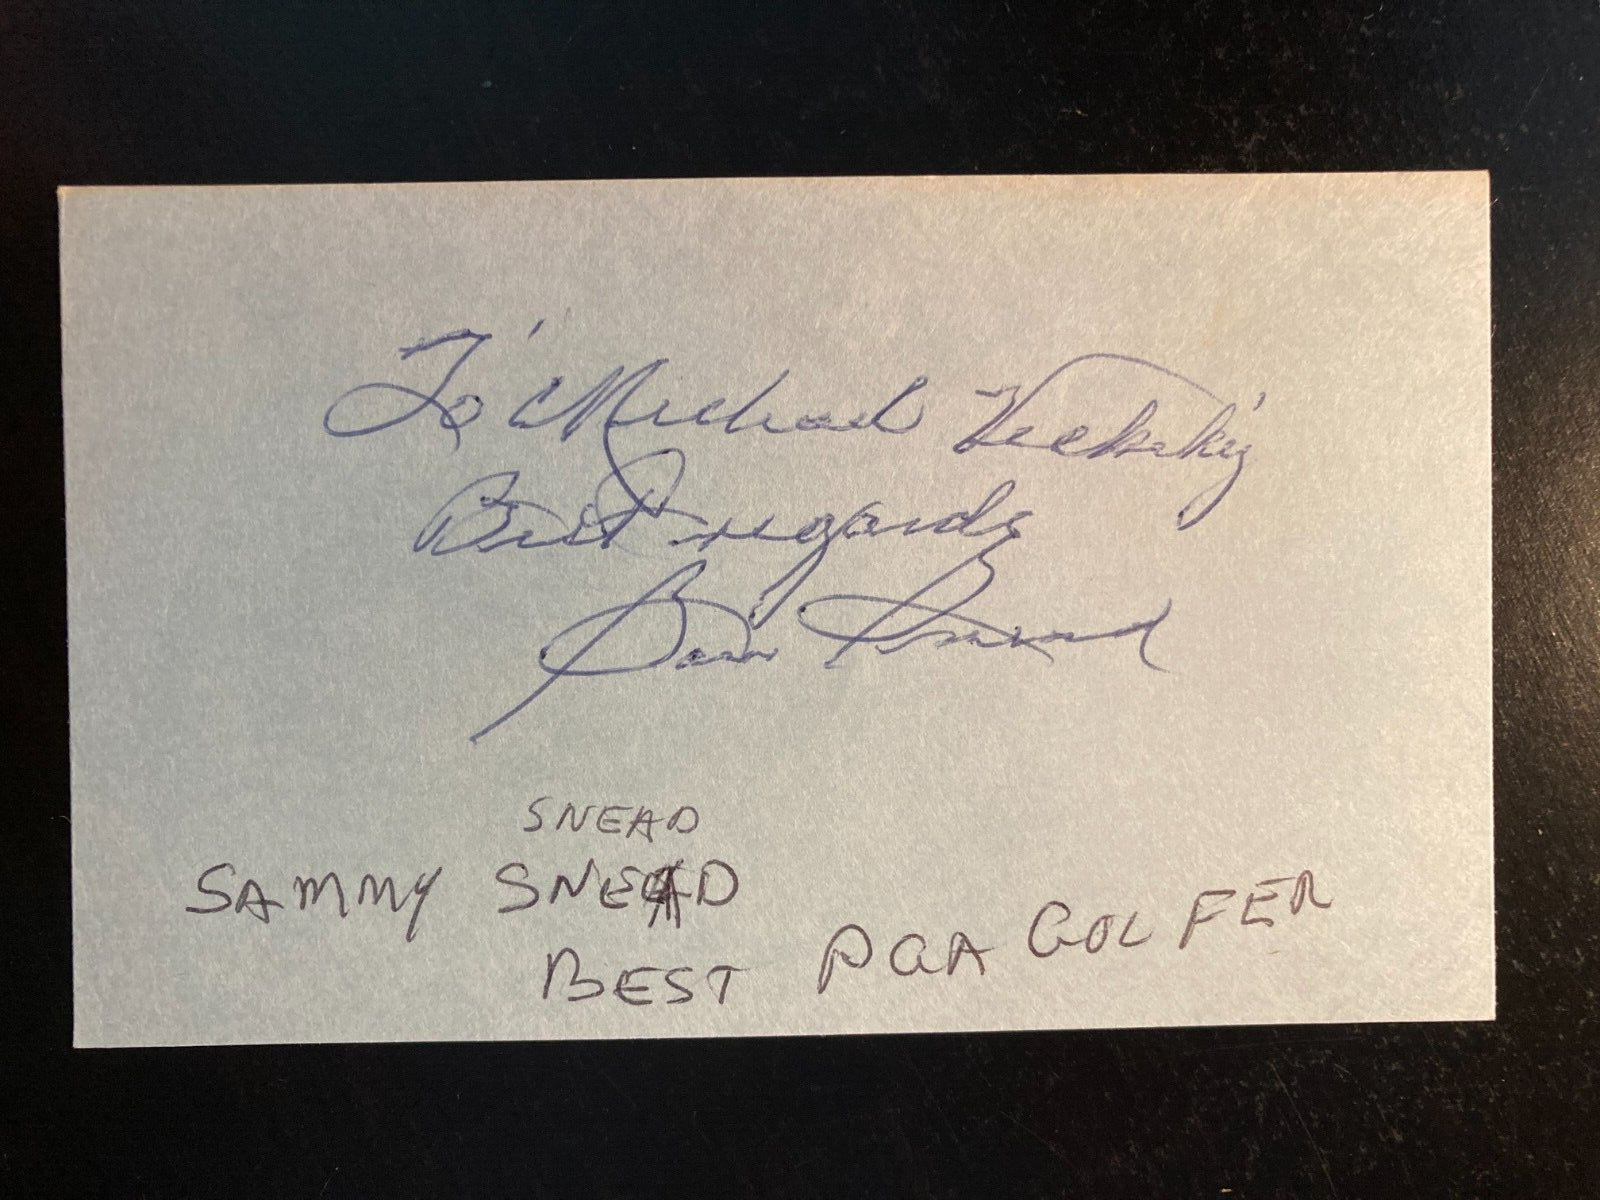 To Michael
Best regards
Sam Snead
SNEAD
SAMMY SNEAD
BEST PGA GOLFER